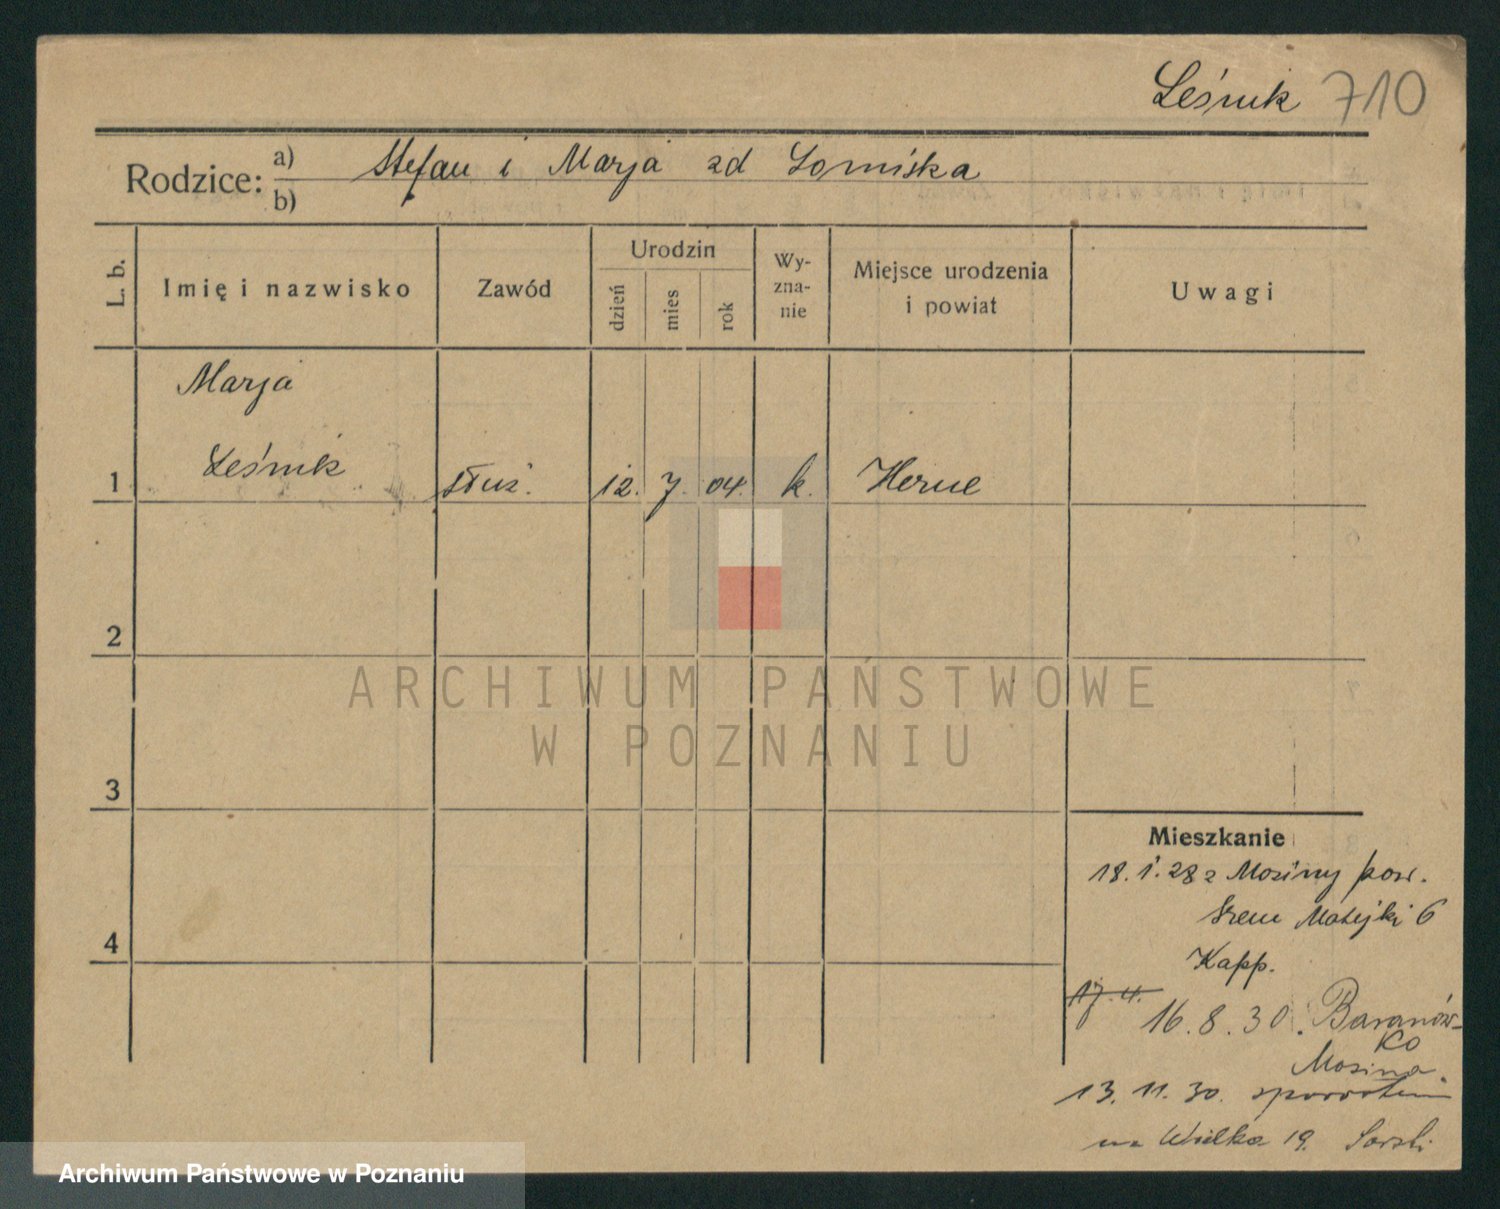 Leśnik 710
Rodzice: a) Stefan i Marja zd Lomiska
b)
L. b.
Imię i nazwisko
Zawód
Urodzin
dzień
mies
rok
Wy-
zna-
nie
Miejsce urodzenia
i powiat
Uwagi
Marja
1 Leśnik służ. 12. 7. 04. k. Herne
2
3
4
Mieszkanie
18.1.28 z Mosiny pow.
Śrem Matejki 6
Kapp.
17.4.
16.8.30. Baranów-
ko
Mosina
13.11.30.
na Wielka 19.
ARCHIWUM PAŃSTWOWE
W POZNANIU
Archiwum Państwowe w Poznaniu